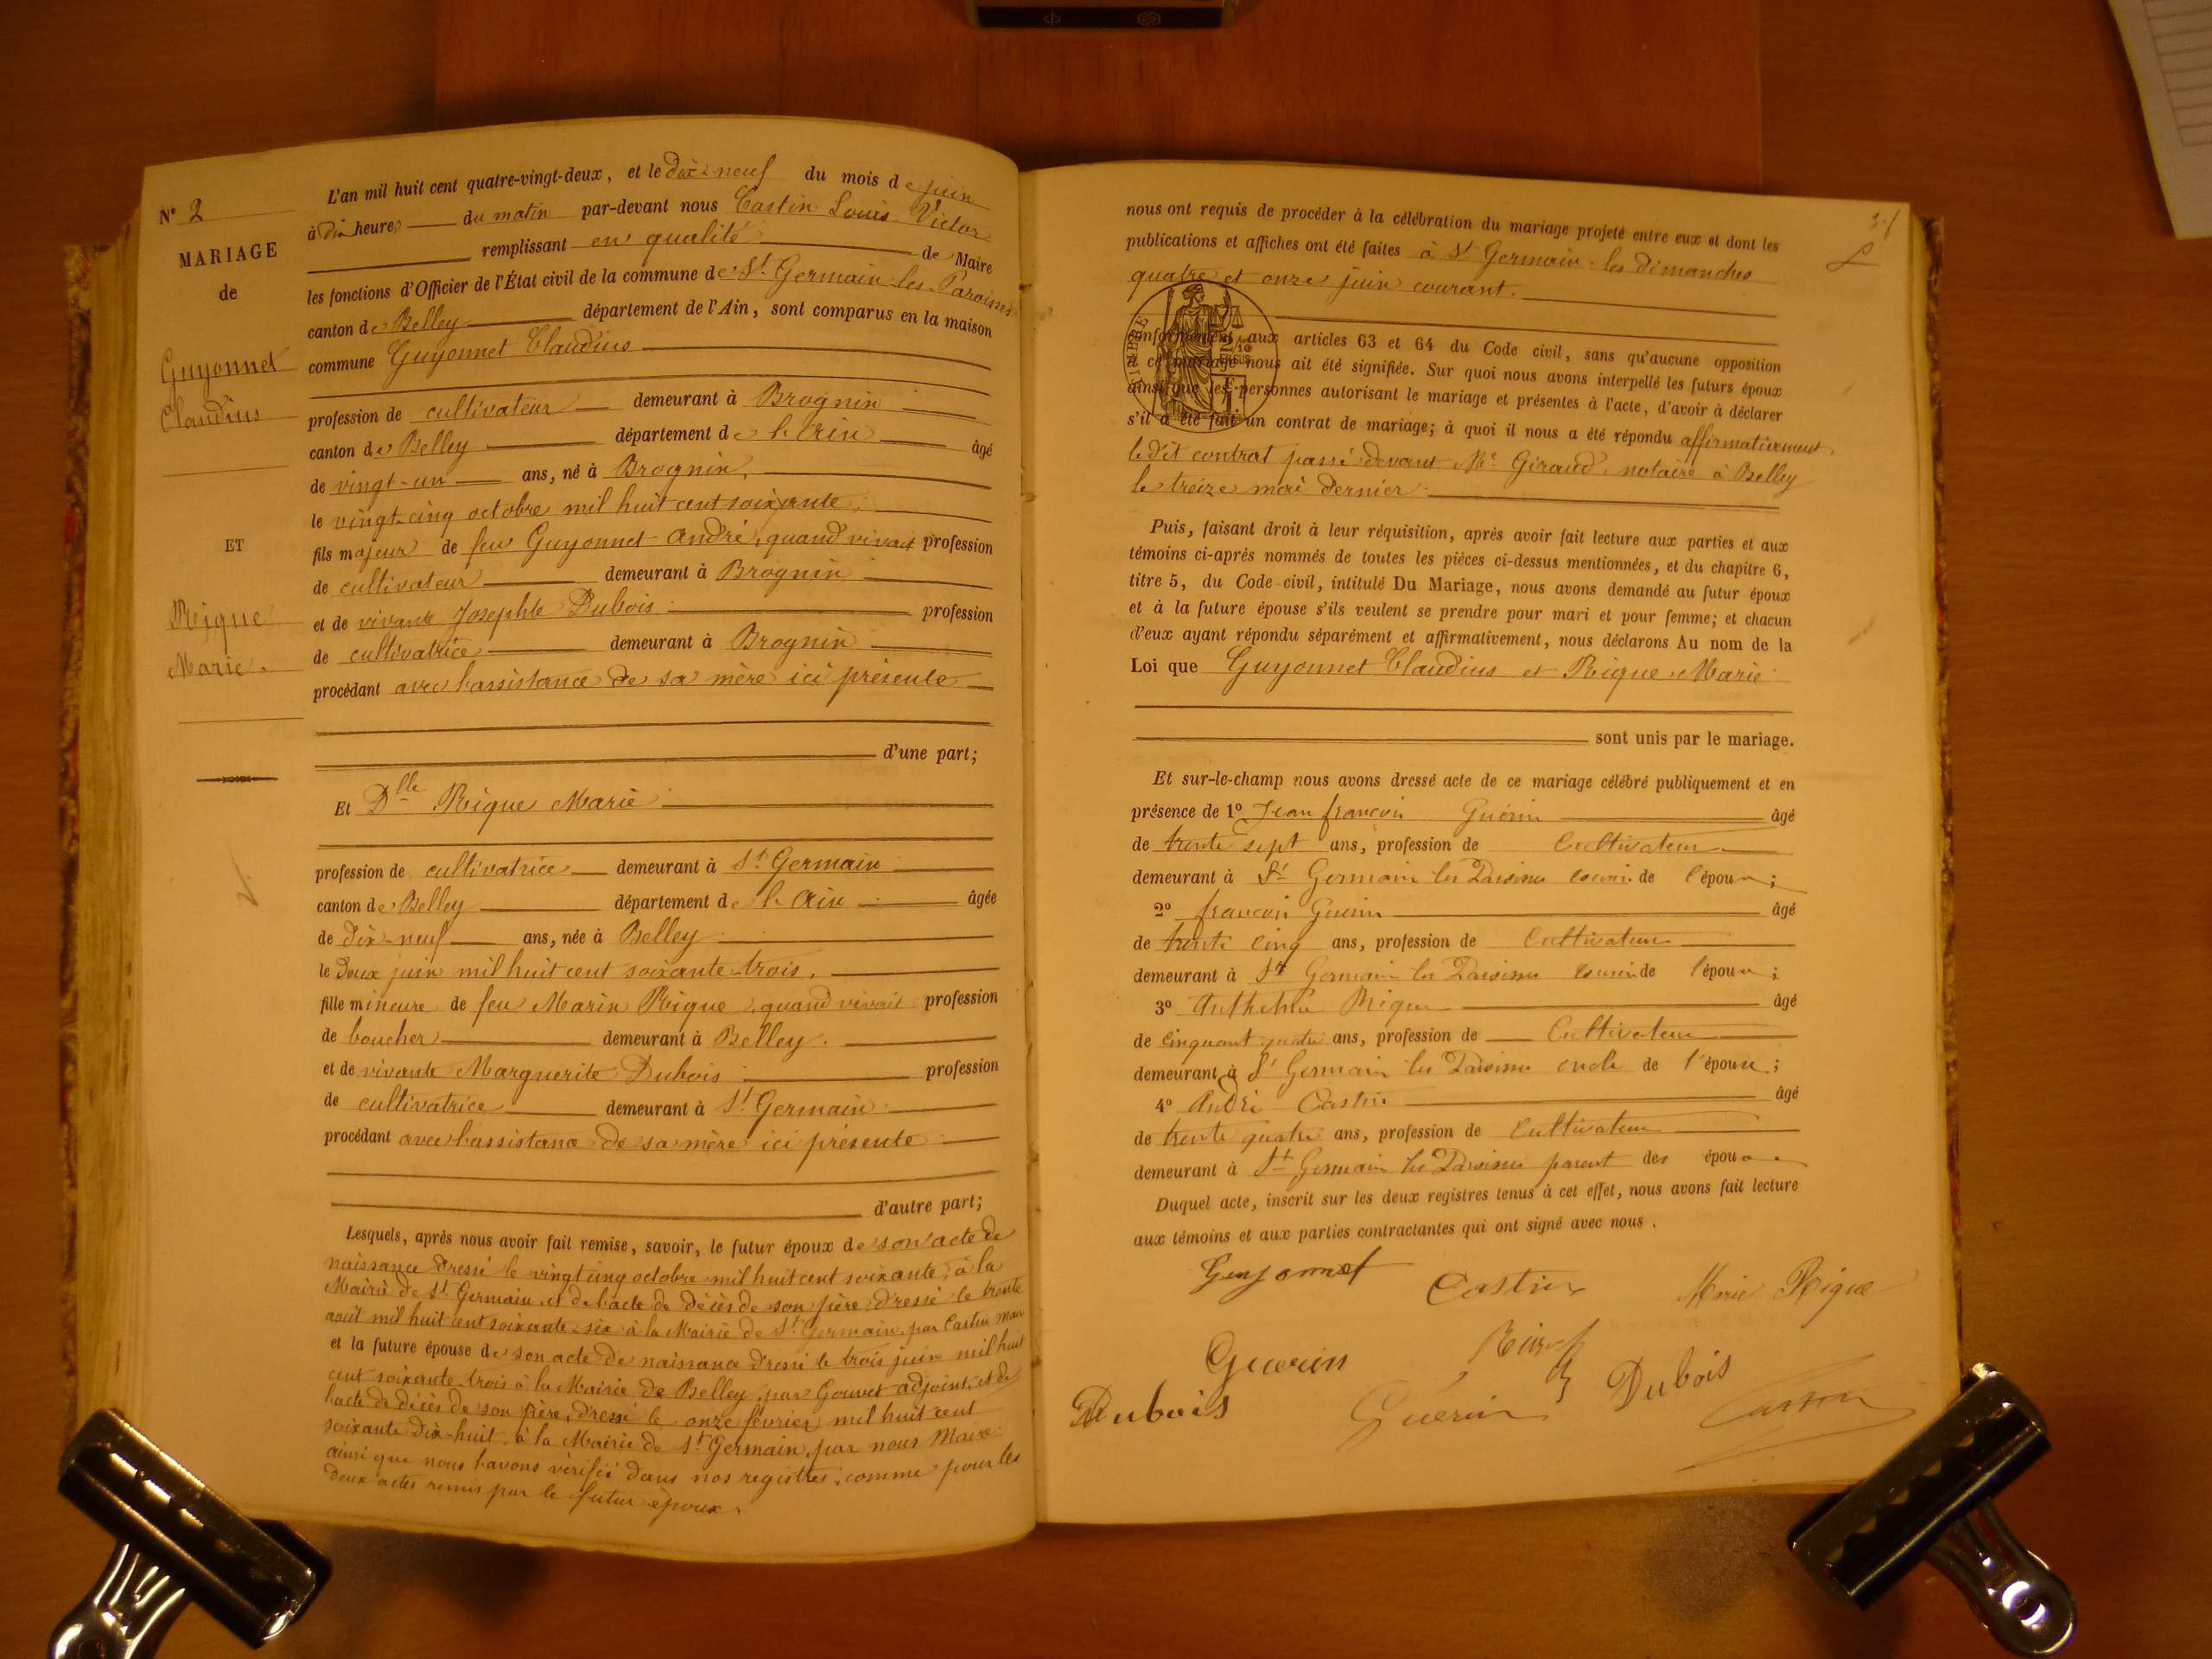 N° 2
MARIAGE
de
Guyonnet
Claudius
ET
Rique
Marie.
L'an mil huit cent quatre-vingt-deux, et le dix-neuf du mois de juin
à dix heures du matin par-devant nous Castin Louis Victor
remplissant en qualité de Maire
les fonctions d'Officier de l'État civil de la commune de St Germain-les-Paroisses
canton de Belley département de l'Ain, sont comparus en la maison
commune Guyonnet Claudius
profession de cultivateur demeurant à Brognin
canton de Belley département de l'Ain âgé
de vingt-un ans, né à Brognin,
le vingt-cinq octobre mil huit cent soixante,
fils majeur de feu Guyonnet André, quand vivait profession
de cultivateur demeurant à Brognin
et de vivante Josephte Dubois profession
de cultivatrice demeurant à Brognin
procédant avec l'assistance de sa mère ici présente
d'une part;
Et Dlle Rique Marie
profession de cultivatrice demeurant à St Germain
canton de Belley département de l'Ain âgée
de dix-neuf ans, née à Belley
le deux juin mil huit cent soixante-trois,
fille mineure de feu Marin Rique, quand vivait profession
de boucher demeurant à Belley.
et de vivante Marguerite Dubois profession
de cultivatrice demeurant à St Germain
procédant avec l'assistance de sa mère ici présente
d'autre part;
Lesquels, après nous avoir fait remise, savoir, le futur époux de son acte de
naissance dressé le vingt cinq octobre mil huit cent soixante, à la
Mairie de St Germain, et de l'acte de décès de son père, dressé le trente
août mil huit cent soixante-six à la Mairie de St Germain, par Castin Maire
et la future épouse de son acte de naissance dressé le trois juin mil huit
cent soixante-trois à la Mairie de Belley, par Gouvet adjoint, et de
l'acte de décès de son père, dressé le onze février mil huit cent
soixante dix-huit, à la Mairie de St Germain, par nous Maire
ainsi que nous l'avons vérifié dans nos registres, comme pour les
deux actes remis par le futur époux.
nous ont requis de procéder à la célébration du mariage projeté entre eux et dont les
publications et affiches ont été faites à St Germain les dimanches
quatre et onze juin courant.
conformément aux articles 63 et 64 du Code civil, sans qu'aucune opposition
à ce mariage nous ait été signifiée. Sur quoi nous avons interpellé les futurs époux
ainsi que les personnes autorisant le mariage et présentes à l'acte, d'avoir à déclarer
s'il a été fait un contrat de mariage; à quoi il nous a été répondu affirmativement,
ledit contrat passé devant Me Giraud, notaire à Belley
le treize mai dernier.
Puis, faisant droit à leur réquisition, après avoir fait lecture aux parties et aux
témoins ci-après nommés de toutes les pièces ci-dessus mentionnées, et du chapitre 6,
titre 5, du Code civil, intitulé Du Mariage, nous avons demandé au futur époux
et à la future épouse s'ils veulent se prendre pour mari et pour femme; et chacun
d'eux ayant répondu séparément et affirmativement, nous déclarons Au nom de la
Loi que Guyonnet Claudius et Rique Marie
sont unis par le mariage.
Et sur-le-champ nous avons dressé acte de ce mariage célébré publiquement et en
présence de 1° Jean françois Guérin âgé
de trente sept ans, profession de Cultivateur
demeurant à St Germain les Paroisses cousin de l'époux;
2° françois Guerin âgé
de trente cinq ans, profession de Cultivateur
demeurant à St Germain les Paroisses cousin de l'époux;
3° Anthelme Rique âgé
de cinquant quatre ans, profession de Cultivateur
demeurant à St Germain les Paroisses oncle de l'épouse;
4° André Castin âgé
de trente quatre ans, profession de Cultivateur
demeurant à St Germain les Paroisses parent des époux.
Duquel acte, inscrit sur les deux registres tenus à cet effet, nous avons fait lecture
aux témoins et aux parties contractantes qui ont signé avec nous.
Guyonnet Castin Marie Rique
Guerin
Dubois Guerin Dubois Castin